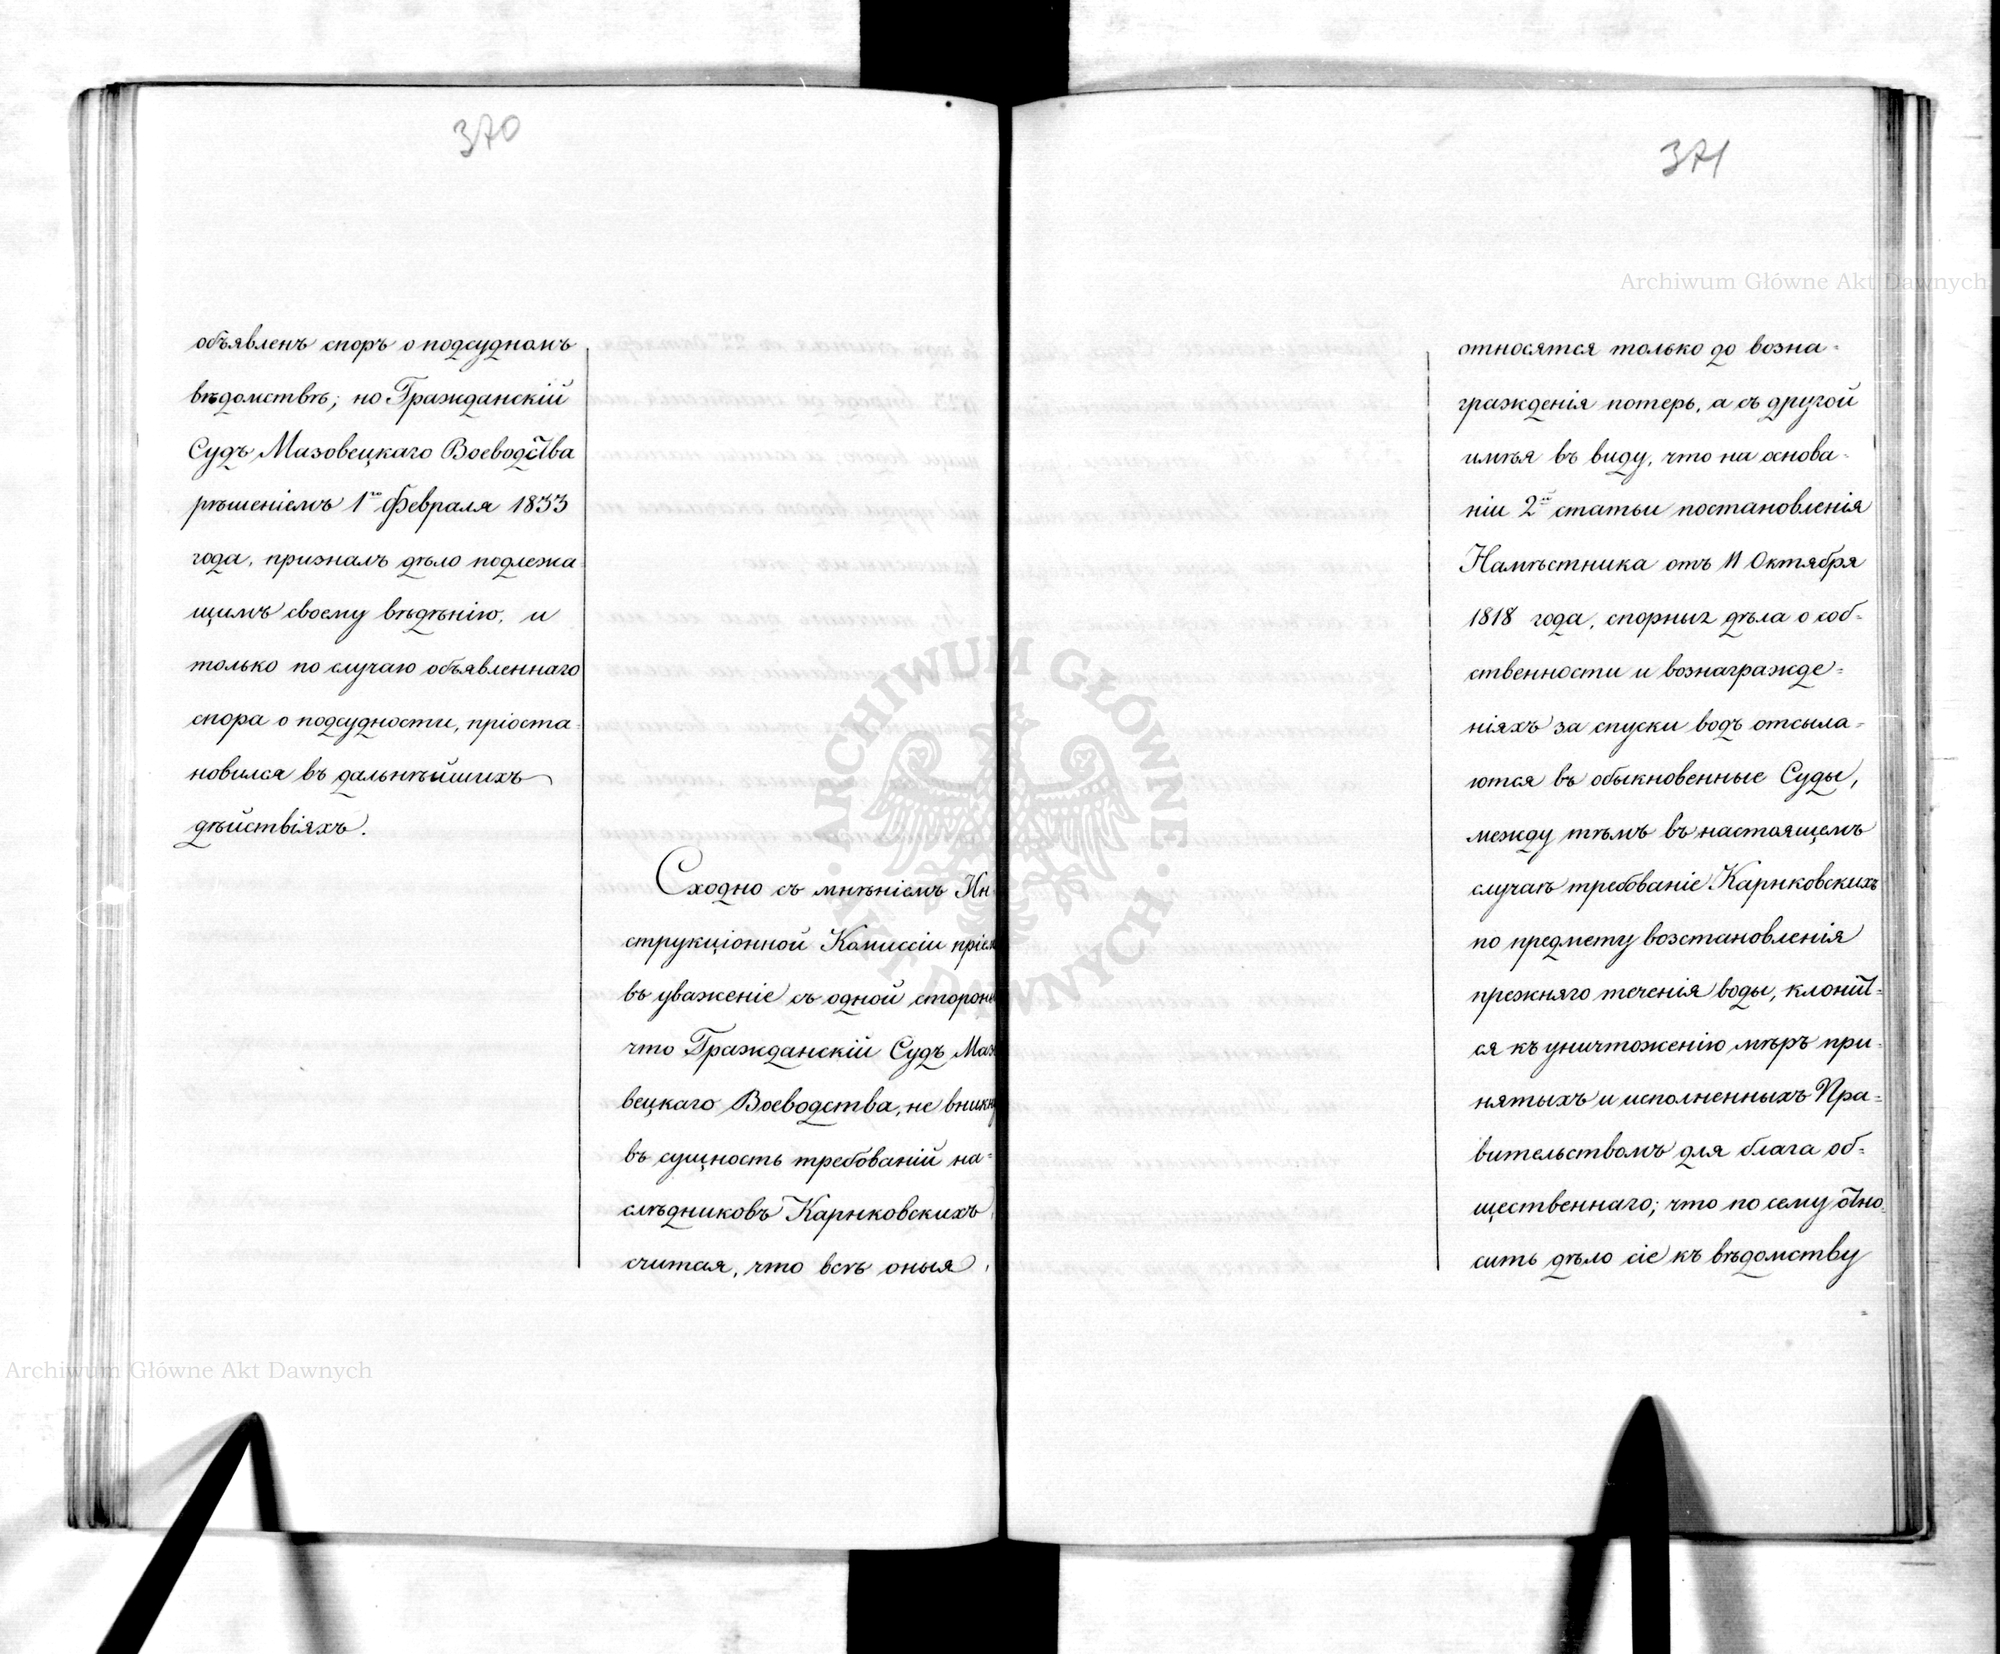 370
объявленъ споръ о подсудномъ
вѣдомствѣ; но Гражданскій
Судъ Мазовецкаго Воеводства
рѣшеніемъ 1го Февраля 1833
года, призналъ дѣло подлежа-
щимъ своему вѣдѣнію, и
только по случаю объявленнаго
спора о подсудности, пріоста-
новился въ дальнѣйшихъ
дѣйствіяхъ.
Сходно съ мнѣніемъ Ин
струкціонной Комиссіи пріем
въ уваженіе съ одной стороны
что Гражданскій Судъ Маз
вецкаго Воеводства, не вникн
въ сущность требованій на=
слѣдниковъ Карнковскихъ
считая, что всѣ оныя,
371
относятся только до возна=
гражденія потерь, а съ другой
имѣя въ виду, что на основа=
ніи 2й статьи постановленія
Намѣстника отъ 11 Октября
1818 года, спорныя дѣла о соб=
ственности и вознагражде=
ніяхъ за спуски водъ отсыла=
ются въ обыкновенные Суды,
между тѣмъ въ настоящемъ
случаѣ требованіе Карнковскихъ
по предмету возстановленія
прежняго теченія воды, клонит=
ся къ уничтоженію мѣръ при=
нятыхъ и исполненныхъ Пра=
вительствомъ для блага об=
щественнаго; что по сему отно=
сить дѣло сіе къ вѣдомству
Archiwum Główne Akt Dawnych
Archiwum Główne Akt Dawnych
ARCHIWUM GŁÓWNE AKT DAWNYCH